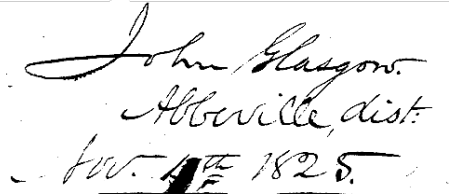 John Glasgow.
Abbeville, dist:
Nov. 4th 1825.